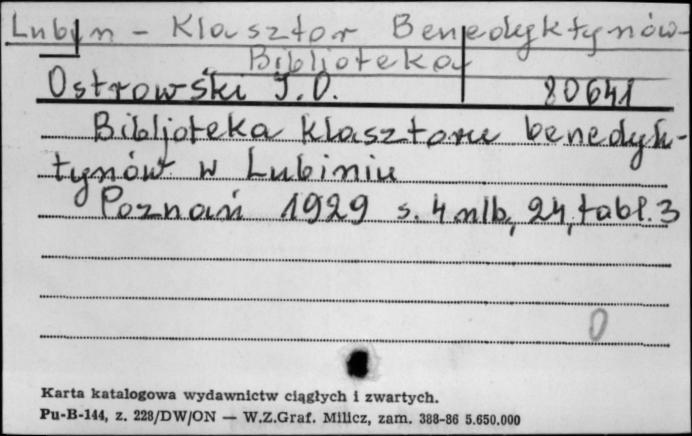 Lubiń - Klasztor Benedyktynów -
Biblioteka
Ostrowski J.O. 80641
Bibljoteka klasztoru benedyk-
tynów w Lubiniu
Poznań 1929 s. 4 nlb, 24, tabl. 3
0
Karta katalogowa wydawnictw ciągłych i zwartych.
Pu-B-144, z. 228/DW/ON — W.Z.Graf. Milicz, zam. 388-86 5.650.000